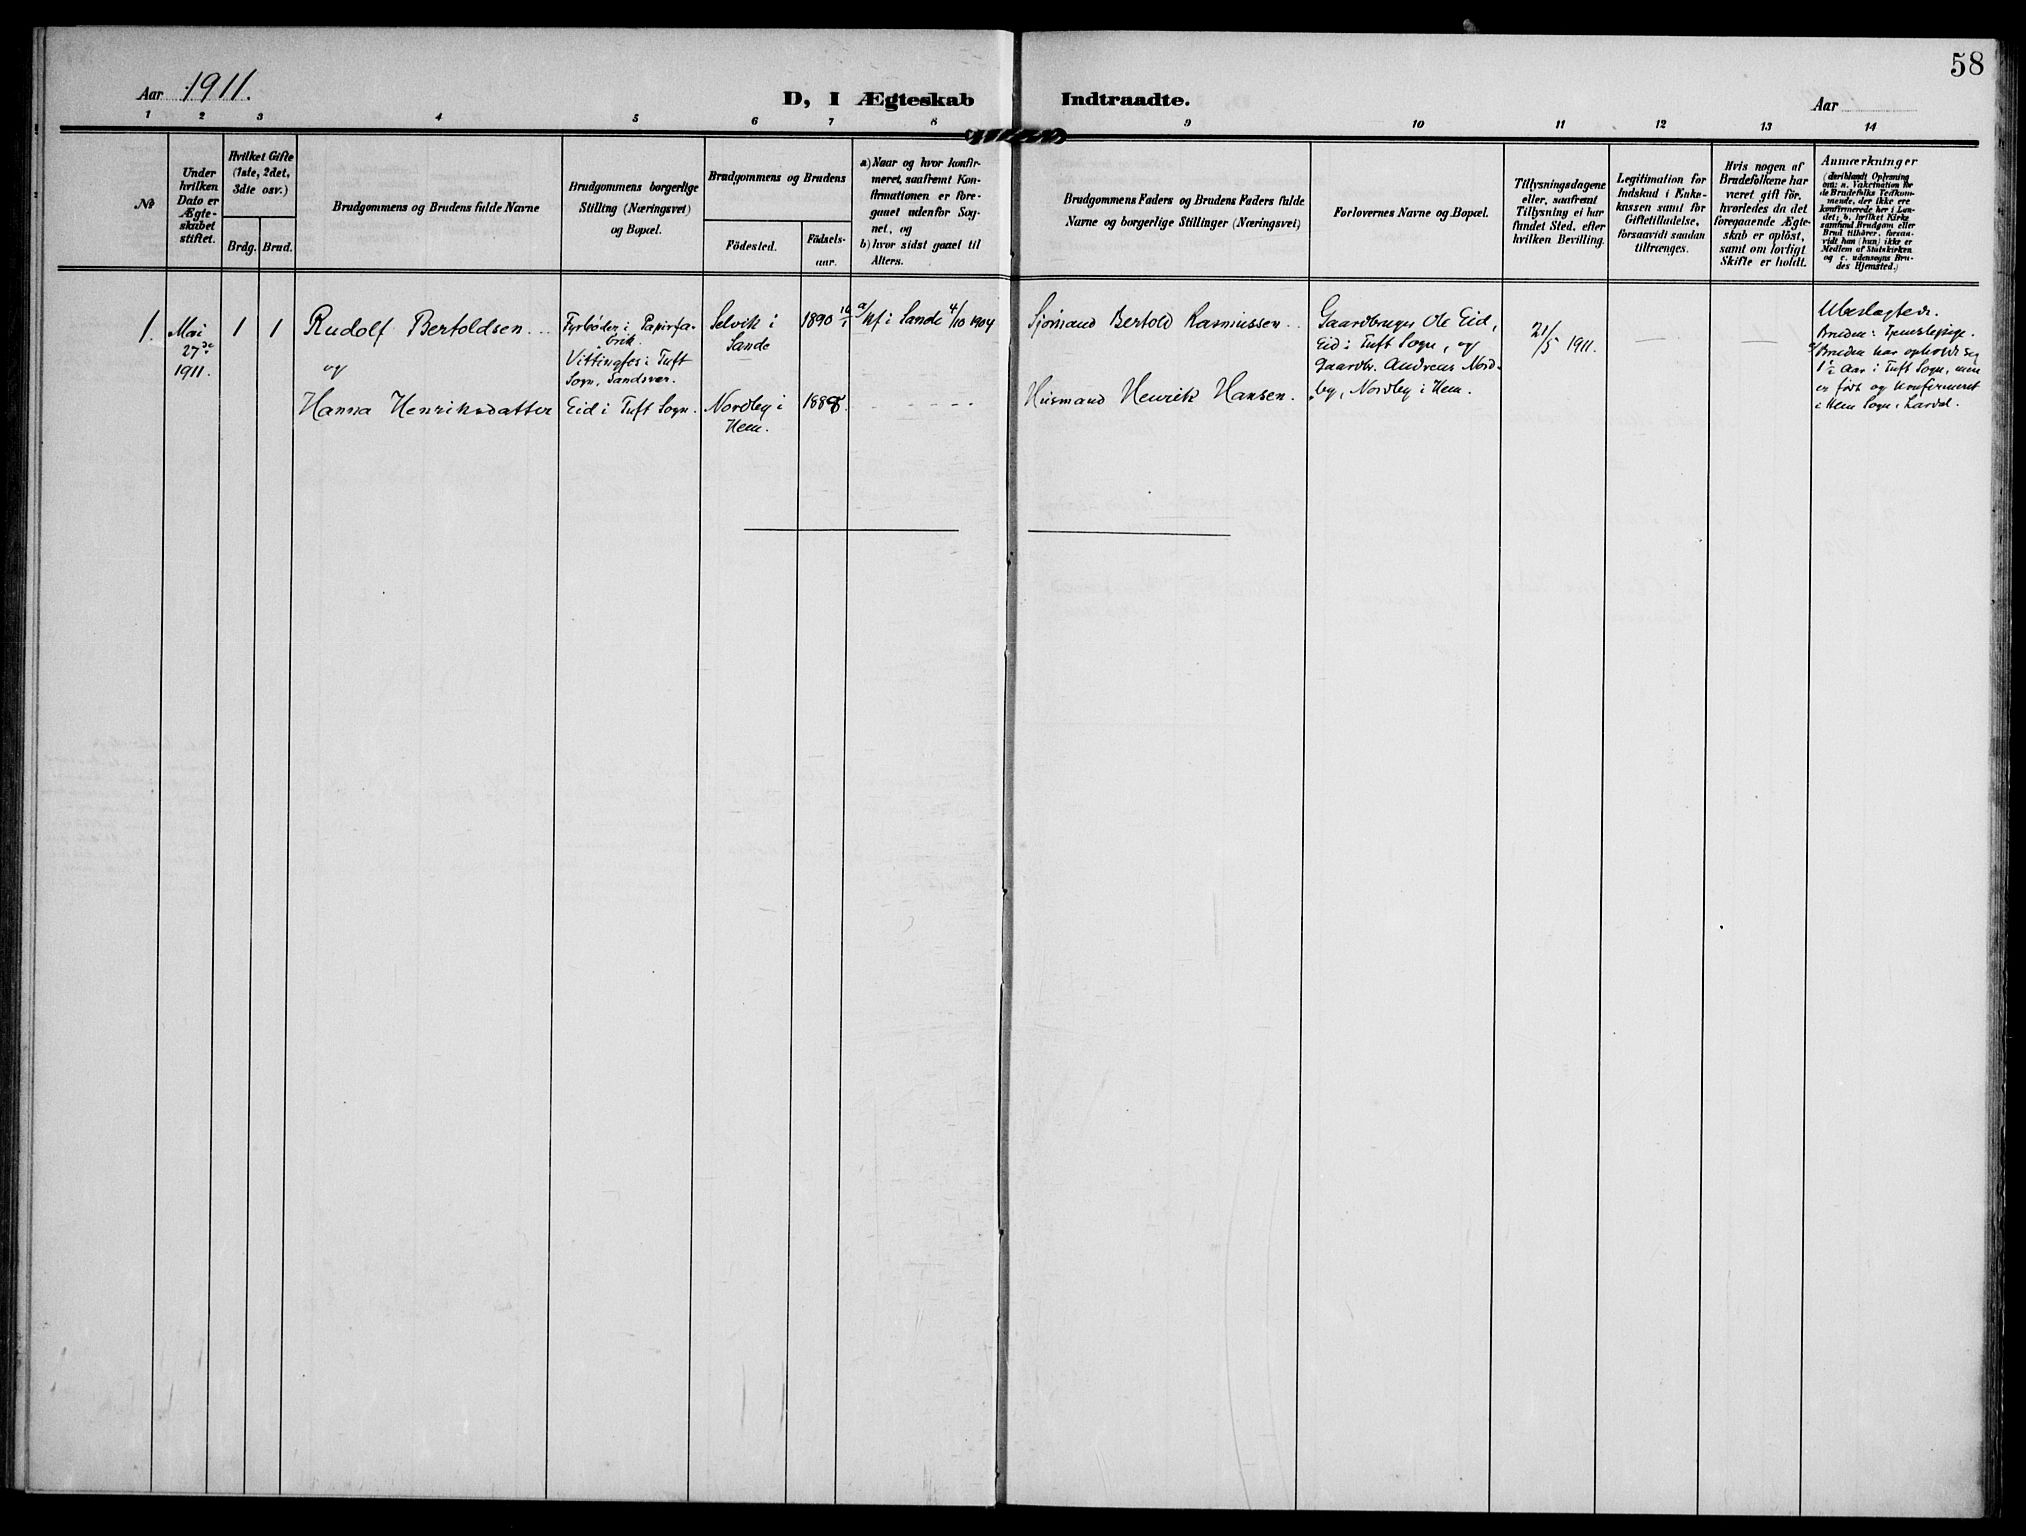 58
Aar 1911.
D, I Ægteskab Indtraadte.
Aar
1 2 3 4 5 6 7 8 9 10 11 12 13 14
No
Under
hvilken
Dato er
Ægte-
skabet
stiftet.
Hvilket Gifte
(1ste, 2det,
3die osv.)
Brdg. Brud.
Brudgommens og Brudens fulde Navne
Brudgommens borgerlige
Stilling (Næringsvei)
og Bopæl.
Brudgommens og Brudens
Födested.
Födsels-
aar.
a) Naar og hvor konfir-
meret, saafremt Kon-
firmationen er fore-
gaaet udenfor Sog-
net, og
b) hvor sidst gaaet til
Alters.
Brudgommens Faders og Brudens Faders fulde
Navne og borgerlige Stillinger (Næringsvei)
Forlovernes Navne og Bopæl.
Tillysningsdagene
eller, saafremt
Tillysning ei har
fundet Sted, efter
hvilken Bevilling.
Legitimation for
Indskud i Enke-
kassen samt for
Giftetilladelse,
forsaavidt saadan
tiltrænges.
Hvis nogen af
Brudefolkene har
været gift för,
hvorledes da det
foregaaende Ægte-
skab er oplöst,
samt om lovligt
Skifte er holdt.
Anmærkninger
(deriblandt Oplysning
om: a. Vakcination for
de Brudefolks Vedkom-
mende, der ikke ere
konfirmerede her i Lan-
det; b. hvilket Kirke-
samfund Brudgom eller
Brud tilhörer, forsaa-
vidt han (hun) ikke er
Medlem af Statskirken
og c. udensogns Bru-
des Hjemsted.)
1.
Mai
27de
1911.
1 1
Rudolf Bertoldsen
og
Hanna Henriksdatter
Fyrbøder i Papirfa-
brik.
Vittingfos i Tuft
Sogn, Sandsvær.
Eid i Tuft Sogn.
Selvik i
Sande
Nordby i
Hem.
1890
1888.
a/ Kf. i Sande 4/10 1904
Sjømand Bertold Rasmussen
Husmand Henrik Hansen.
Gaardbruger Ole Eid,
Eid i Tuft Sogn, og
Gaardbr. Andreas Nord-
by, Nordby i Hem.
21/5 1911.
Ubeslægtede.
Bruden: Tjenestepige.
Bruden har opholdt sig
1½ Aar i Tuft Sogn, men
er født og konfirmeret
i Hem Sogn, Lardal.